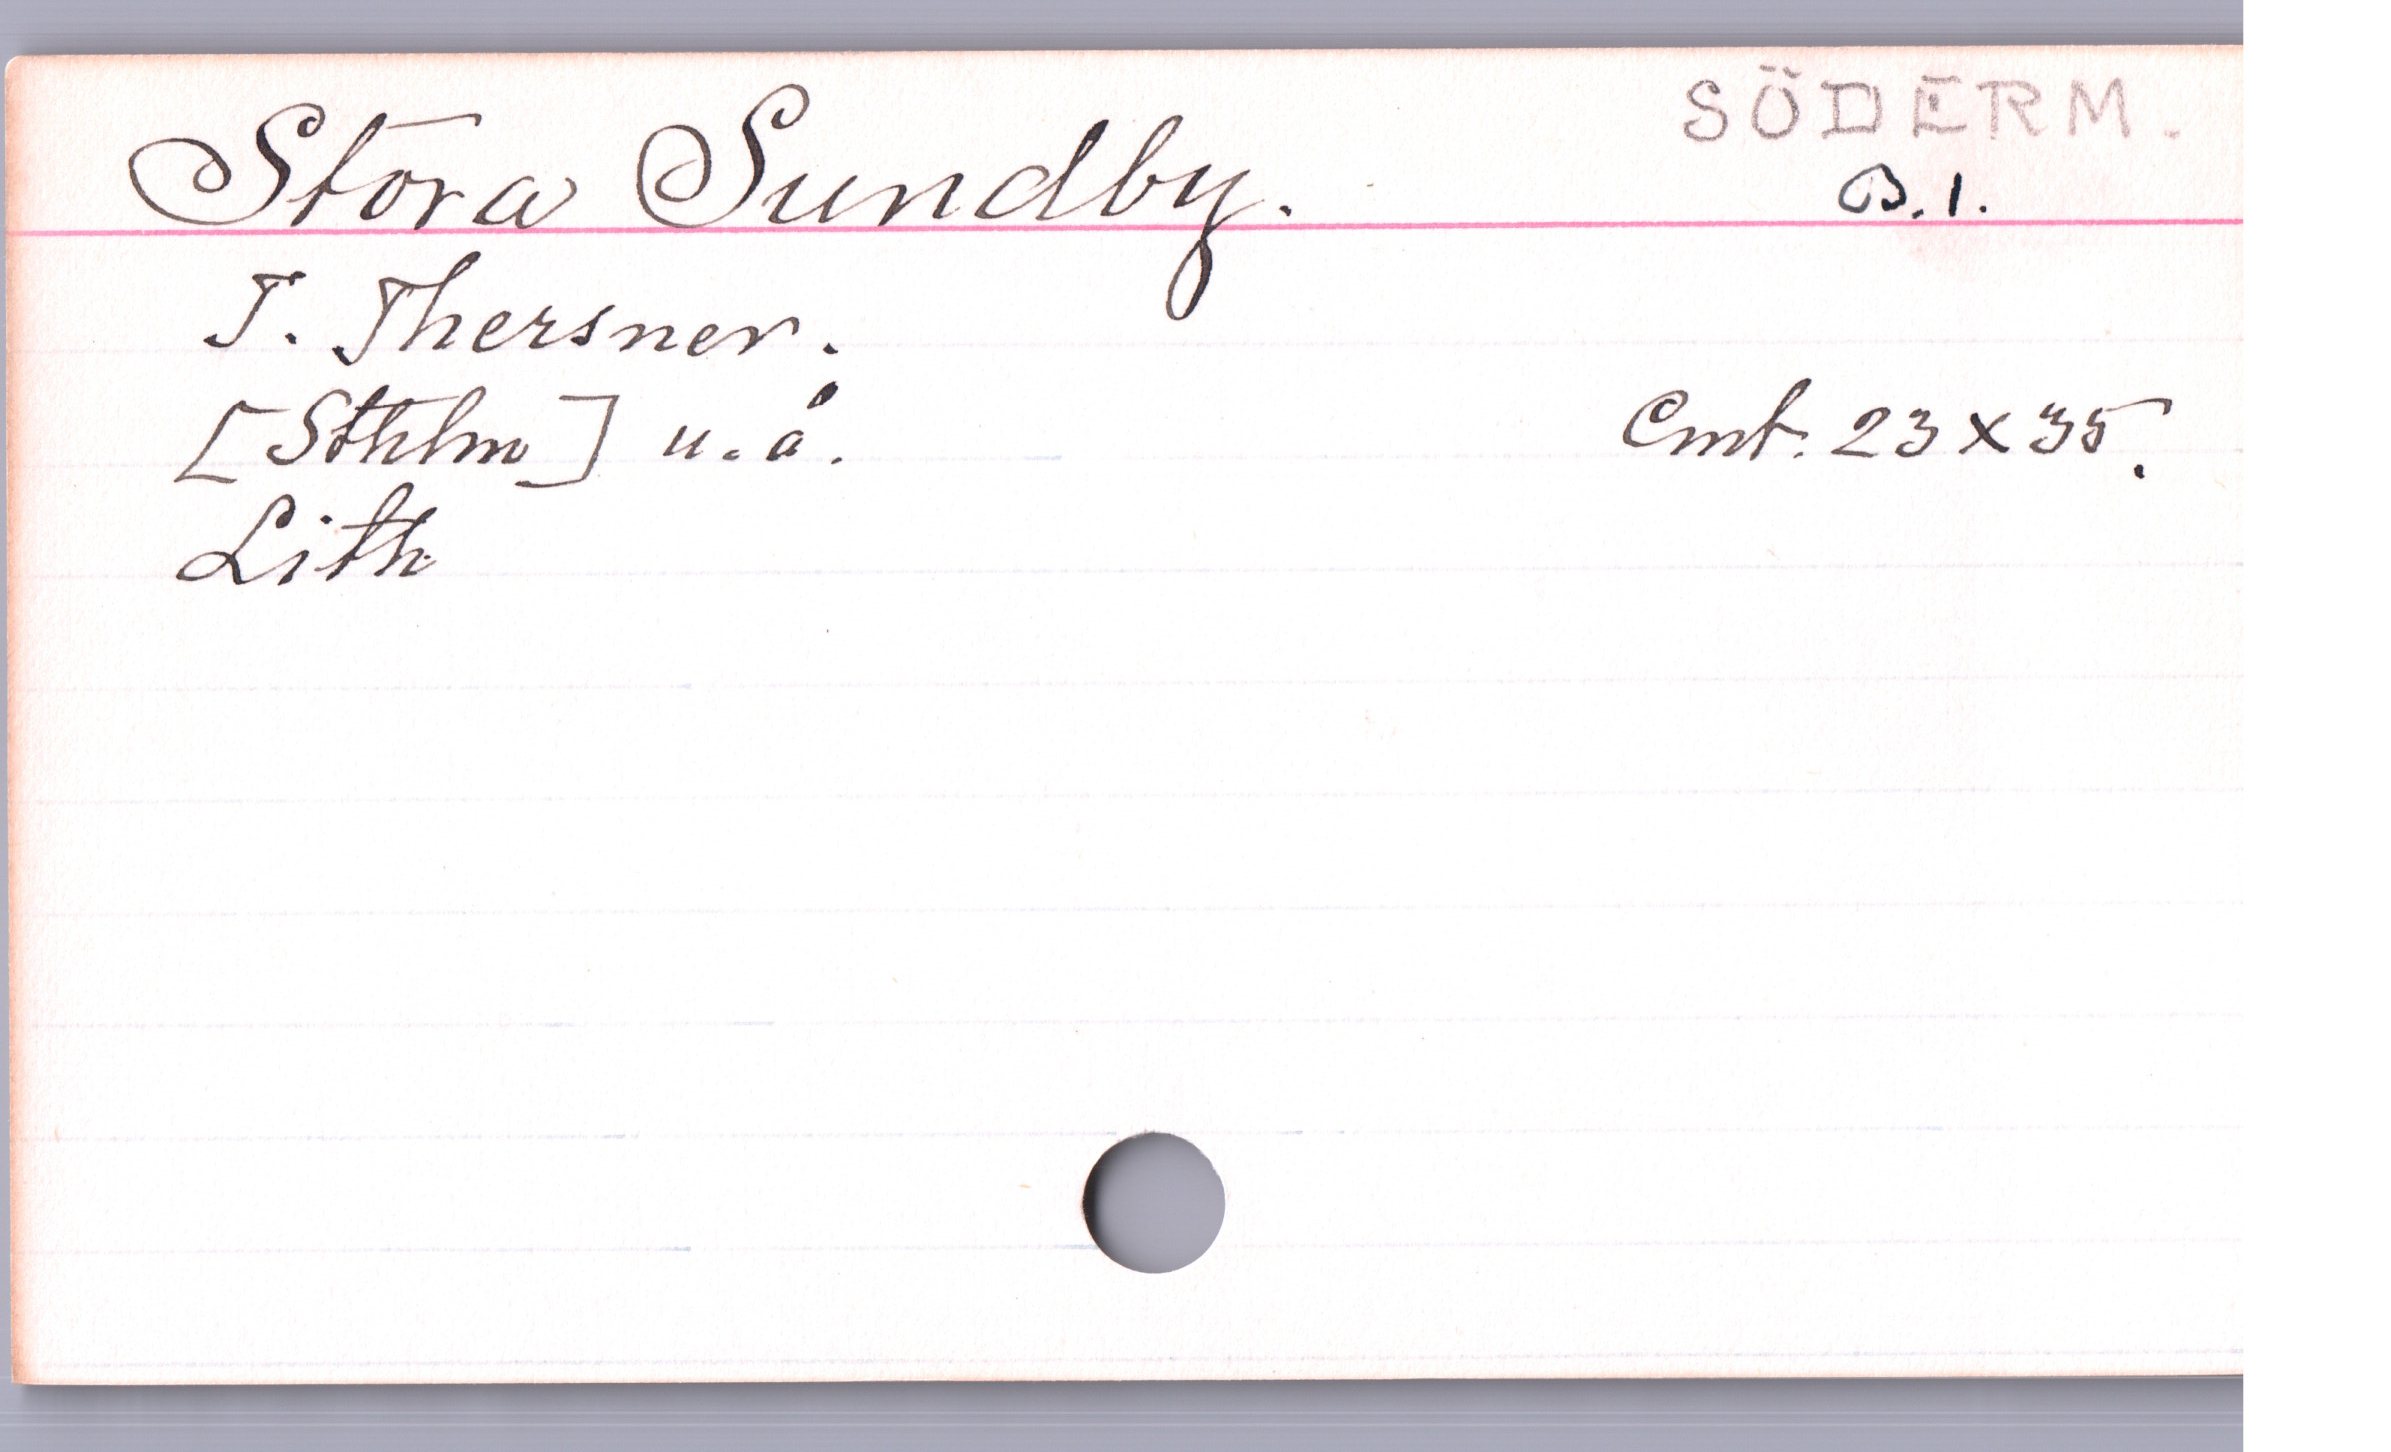 Stora Sundby.
SÖDERM.
B. 1.
T. Thersner.
[Sthlm] u. å.
Cmt. 23 x 35.
Lith.